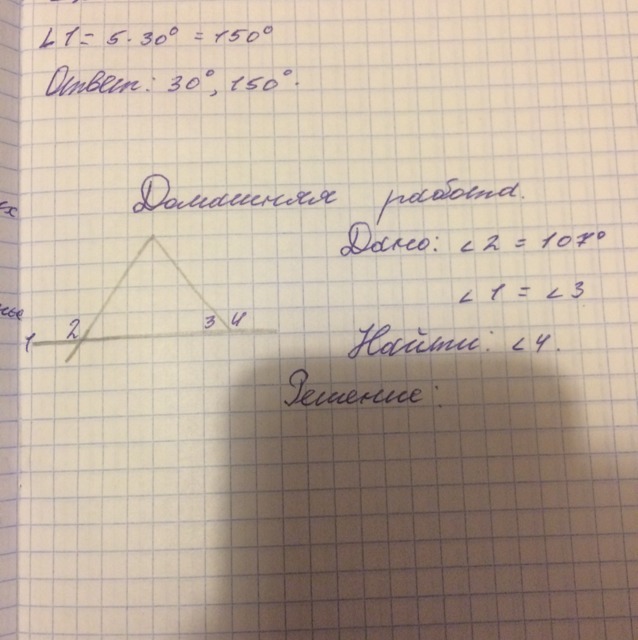 ∠1 = 5 · 30° = 150°
Ответ: 30°, 150°.
Домашняя работа.
Дано: ∠2 = 107°
∠1 = ∠3
Найти: ∠4.
Решение:
1 2 3 4